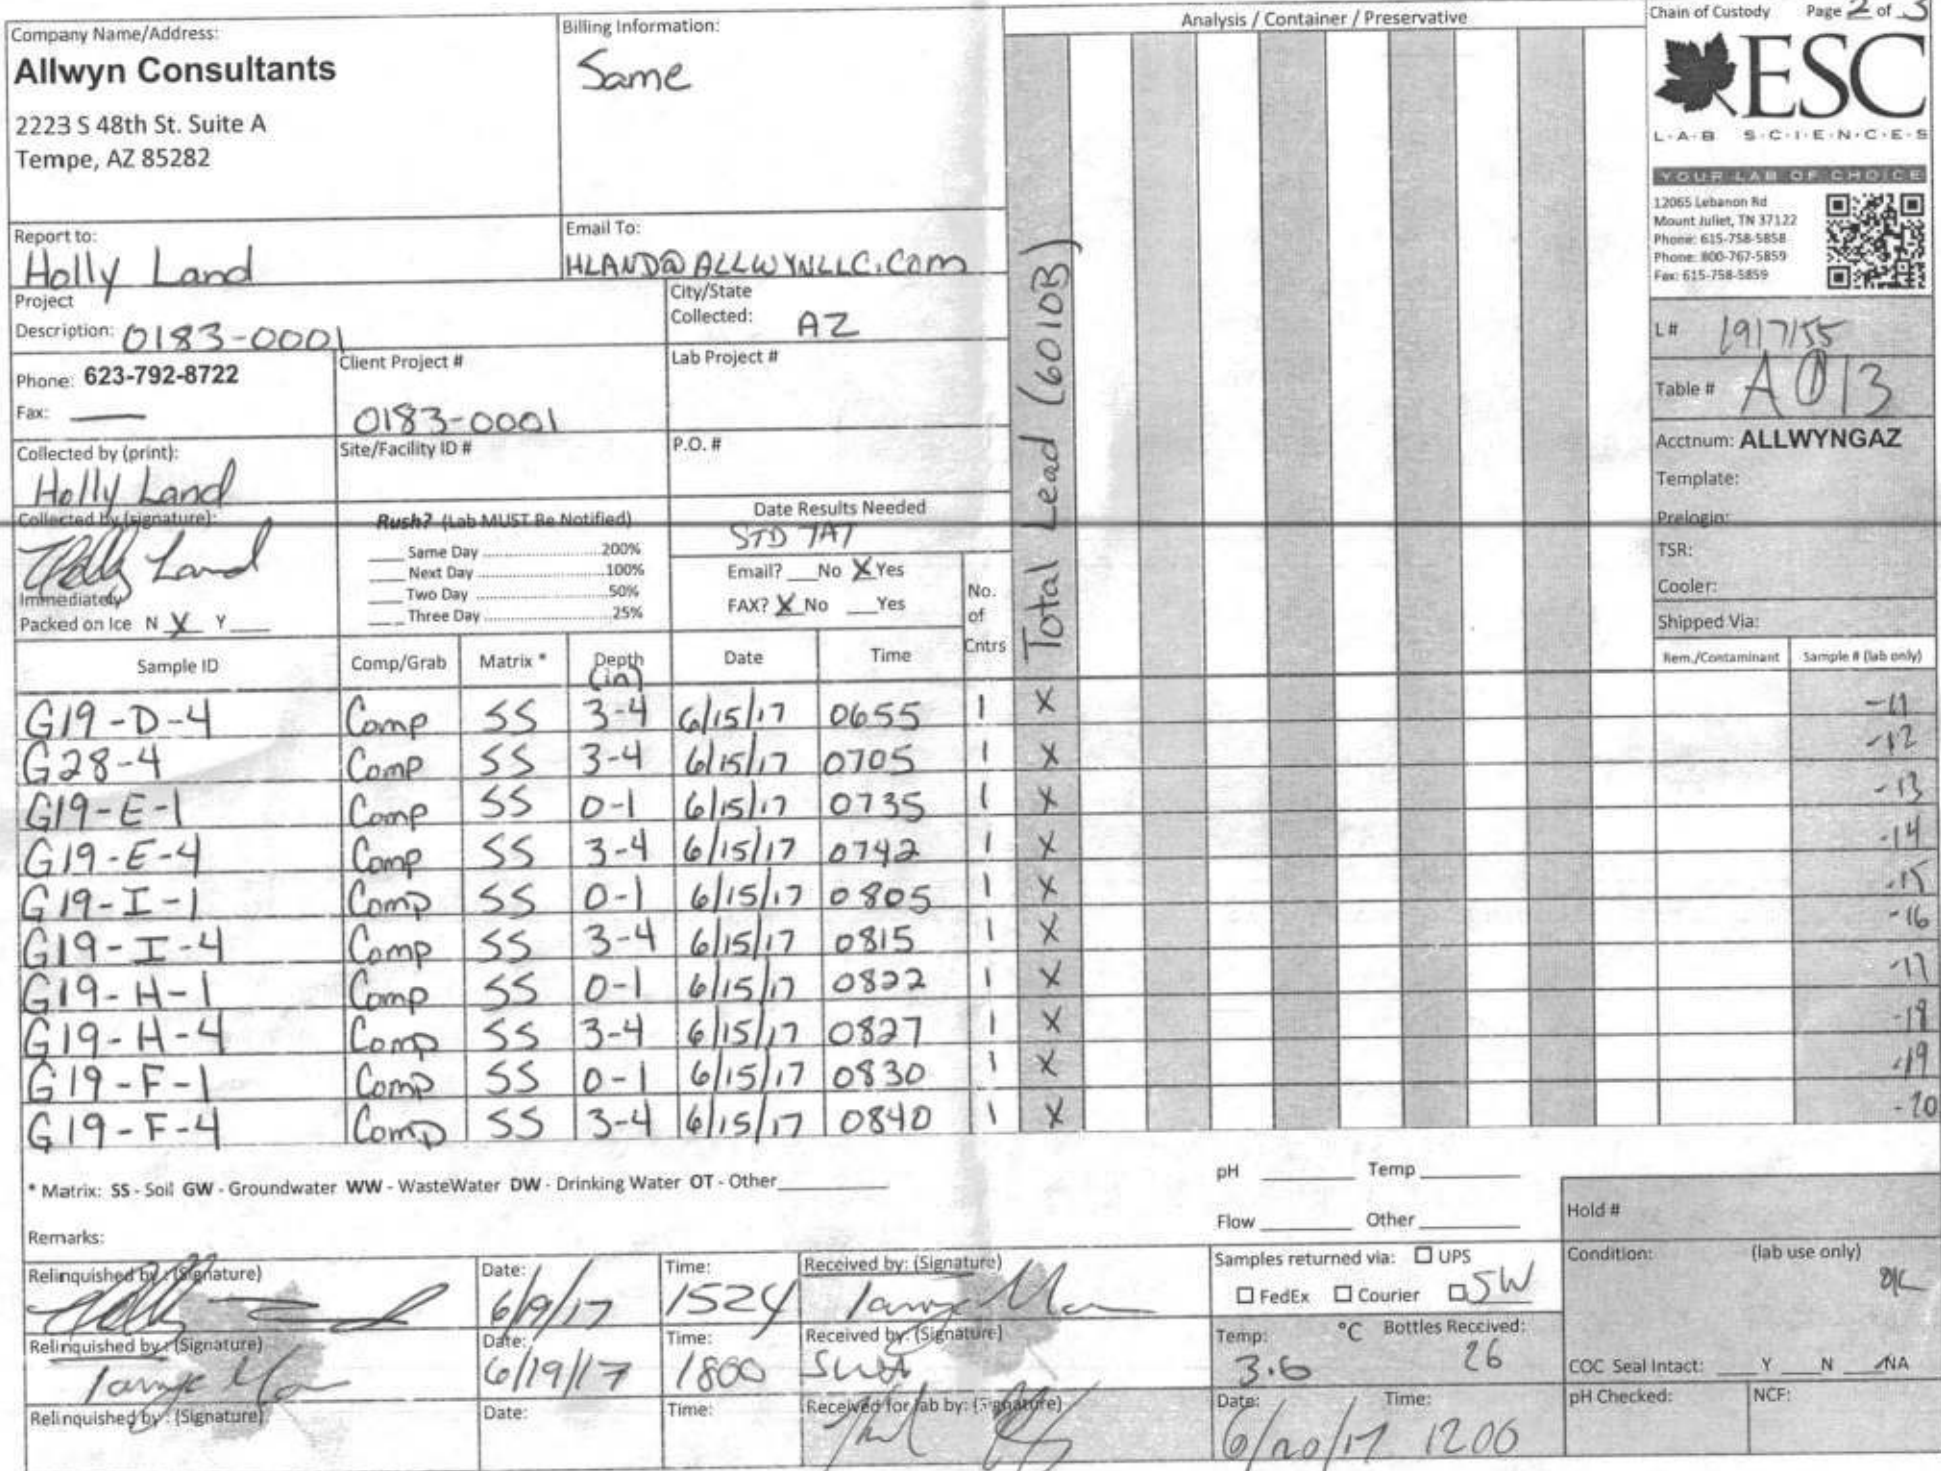 Company Name/Address:
Allwyn Consultants
2223 S 48th St. Suite A
Tempe, AZ 85282
Billing Information:
Same
Analysis / Container / Preservative
Chain of Custody Page 2 of 3
ESC
L·A·B S·C·I·E·N·C·E·S
YOUR LAB OF CHOICE
12065 Lebanon Rd
Mount Juliet, TN 37122
Phone: 615-758-5858
Phone: 800-767-5859
Fax: 615-758-5859
Report to:
Holly Land
Email To:
HLAND@ALLWYNLLC.COM
Project
Description: 0183-0001
City/State
Collected: AZ
Phone: 623-792-8722
Fax: —
Client Project #
0183-0001
Lab Project #
L# L917155
Table # A013
Collected by (print):
Holly Land
Site/Facility ID #
P.O. #
Acctnum: ALLWYNGAZ
Template:
Prelogin:
TSR:
Cooler:
Shipped Via:
Collected by (signature):
Holly Land
Immediately
Packed on Ice N X Y
Rush? (Lab MUST Be Notified)
Same Day 200%
Next Day 100%
Two Day 50%
Three Day 25%
Date Results Needed
STD TAT
Email? No X Yes
FAX? X No Yes
No.
of
Cntrs
Total Lead (6010B)
Sample ID Comp/Grab Matrix * Depth (in) Date Time Rem./Contaminant Sample # (lab only)
G19-D-4 Comp SS 3-4 6/15/17 0655 1 X -11
G28-4 Comp SS 3-4 6/15/17 0705 1 X -12
G19-E-1 Comp SS 0-1 6/15/17 0735 1 X -13
G19-E-4 Comp SS 3-4 6/15/17 0742 1 X -14
G19-I-1 Comp SS 0-1 6/15/17 0805 1 X -15
G19-I-4 Comp SS 3-4 6/15/17 0815 1 X -16
G19-H-1 Comp SS 0-1 6/15/17 0822 1 X -17
G19-H-4 Comp SS 3-4 6/15/17 0827 1 X -18
G19-F-1 Comp SS 0-1 6/15/17 0830 1 X -19
G19-F-4 Comp SS 3-4 6/15/17 0840 1 X -20
* Matrix: SS - Soil GW - Groundwater WW - WasteWater DW - Drinking Water OT - Other
pH Temp
Flow Other
Remarks:
Hold #
Relinquished by : (Signature)
Date: 6/9/17
Time: 1524
Received by: (Signature)
Samples returned via: UPS
FedEx Courier SW
Condition: (lab use only)
OK
Relinquished by : (Signature)
Date: 6/19/17
Time: 1800
Received by: (Signature)
Temp: 3.6 °C
Bottles Received: 26
COC Seal Intact: Y N NA
Relinquished by : (Signature)
Date:
Time:
Received for lab by: (Signature)
Date: 6/20/17
Time: 1200
pH Checked:
NCF: